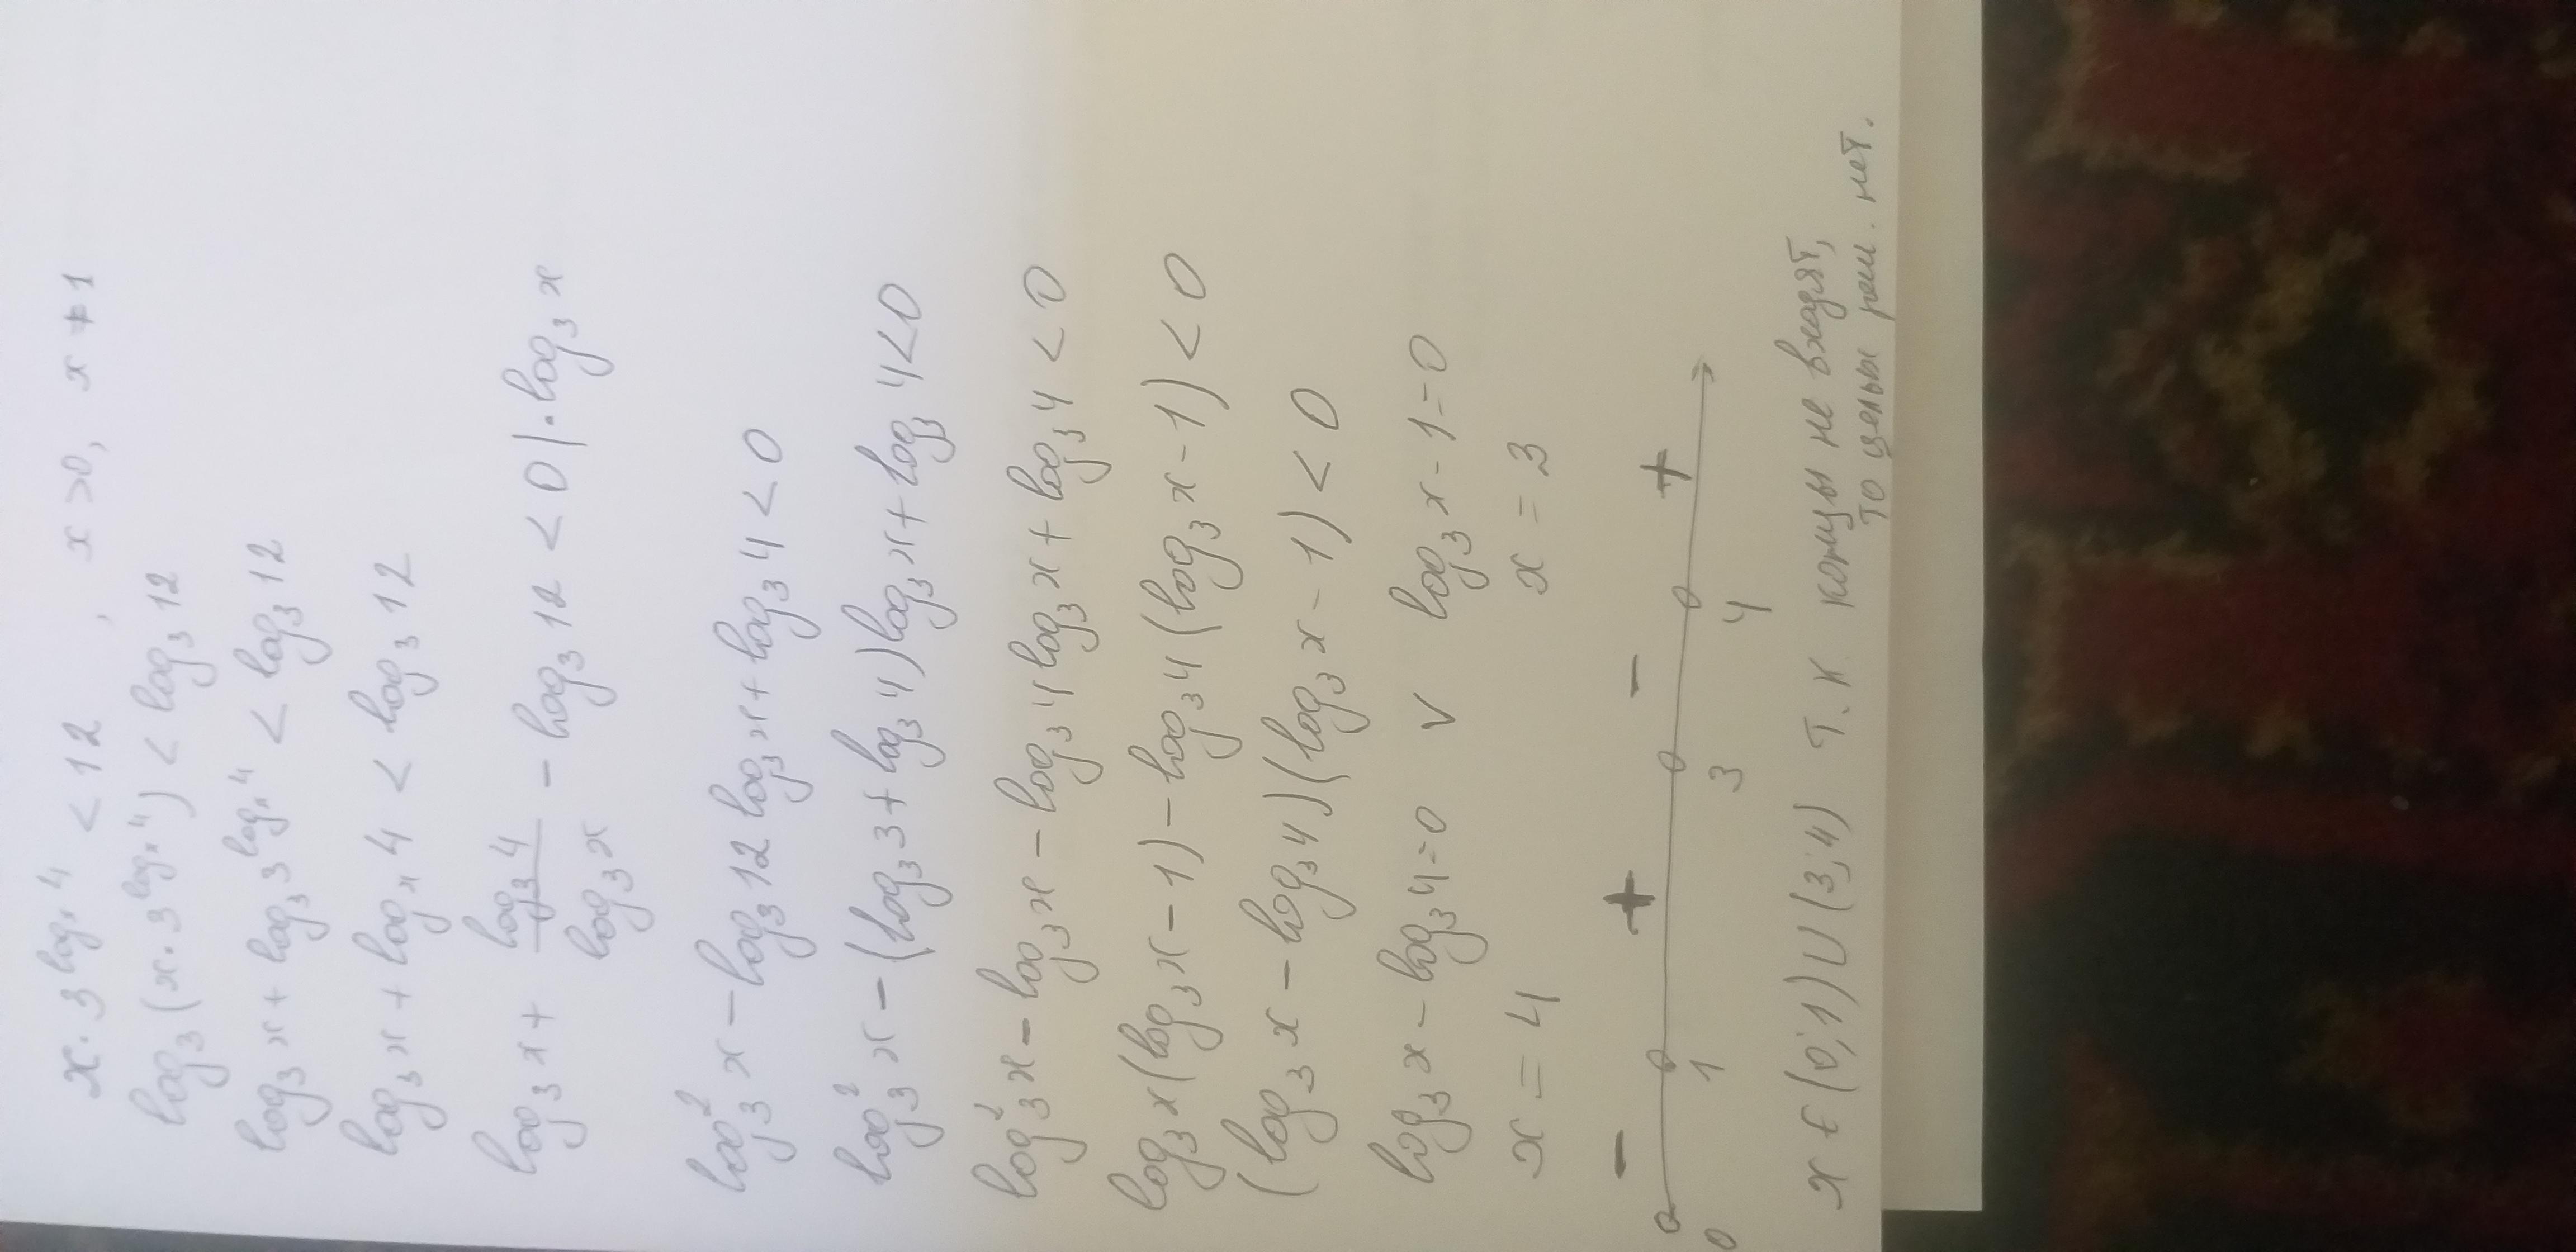 x · 3^{log_x 4} < 12 , x > 0, x ≠ 1
log_3 (x · 3^{log_x 4}) < log_3 12
log_3 x + log_3 3^{log_x 4} < log_3 12
log_3 x + log_x 4 < log_3 12
log_3 x + \frac{log_3 4}{log_3 x} - log_3 12 < 0 | · log_3 x
log_3^2 x - log_3 12 log_3 x + log_3 4 < 0
log_3^2 x - (log_3 3 + log_3 4) log_3 x + log_3 4 < 0
log_3^2 x - log_3 x - log_3 4 log_3 x + log_3 4 < 0
log_3 x (log_3 x - 1) - log_3 4 (log_3 x - 1) < 0
(log_3 x - log_3 4) (log_3 x - 1) < 0
log_3 x - log_3 4 = 0 v log_3 x - 1 = 0
x = 4 x = 3
- + - +
0 1 3 4
x ∈ (0; 1) U (3; 4) т.к концы не входят,
то целых реш. нет.